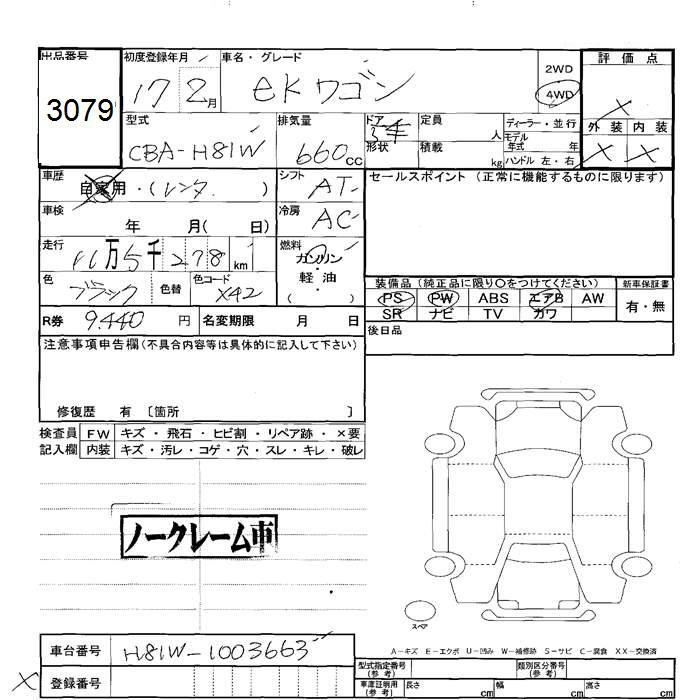 出品番号 初度登録年月 車名・グレード 評価点
3079 17 2月 eKワゴン 2WD 4WD X
型式 排気量 ドア 定員 ディーラー・並行 外装 内装
CBA-H81W 660cc 人 モデル年式 年 X X
形状 積載 kg ハンドル 左・右
車歴 自家用・(レンタ ) シフト AT セールスポイント (正常に機能するものに限ります)
車検 年 月( 日) 冷房 AC
走行 11万5千278km 燃料 ガソリン・軽油
( )
色 ブラック 色替 色コード X42 装備品 (純正品に限り○をつけてください) 新車保証書
PS PW ABS エアB AW 有・無
SR ナビ TV カワ
R券 9.440円 名変期限 月 日 後日品
注意事項申告欄(不具合内容等は具体的に記入して下さい)
修復歴 有 〔箇所 〕
検査員 FW キズ・飛石・ヒビ割・リペア跡・×要
記入欄 内装 キズ・汚レ・コゲ・穴・スレ・キレ・破レ
ノークレーム車
スペア
A-キズ E-エクボ U-凹み W-補修跡 S-サビ C-腐食 XX-交換済
車台番号 H81W-1003663
型式指定番号(参考) 類別区分番号(参考)
X 登録番号 車庫証明用(参考) 長さ cm 幅 cm 高さ cm